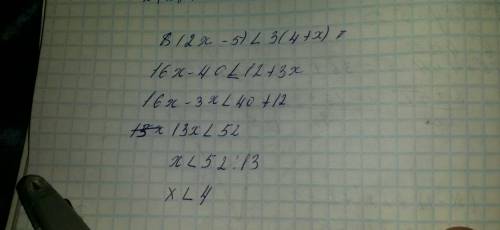 8(2x - 5) < 3(4+x)
16x - 40 < 12+3x
16x - 3x < 40 + 12
13x < 52
x < 52:13
x < 4